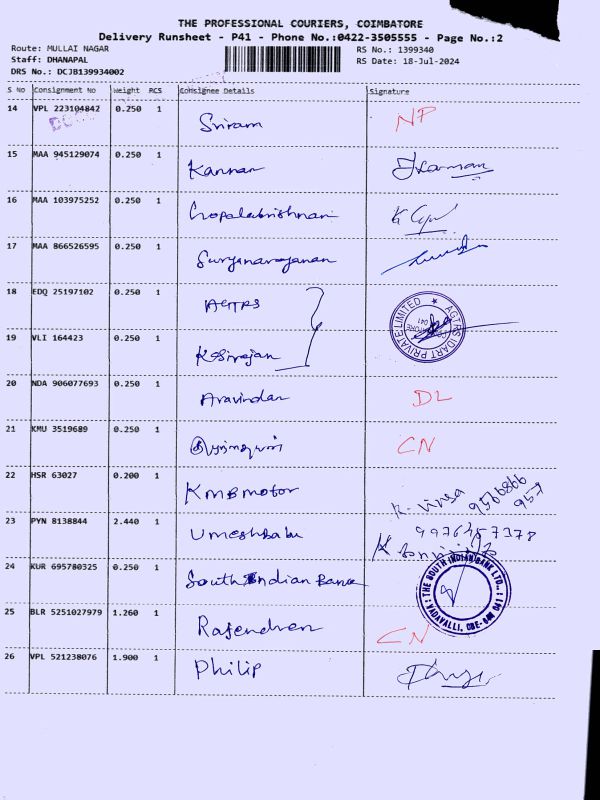 THE PROFESSIONAL COURIERS, COIMBATORE
Delivery Runsheet - P41 - Phone No.:0422-3505555 - Page No.:2
Route: MULLAI NAGAR RS No.: 1399340
Staff: DHANAPAL RS Date: 18-Jul-2024
DRS No.: DCJB139934002
S No Consignment No Weight RCS Consignee Details Signature
14 VPL 223104842 0.250 1 Sriram NP
15 MAA 945129074 0.250 1 Kannan
16 MAA 103975252 0.250 1 Gopalakrishnan
17 MAA 866526595 0.250 1 Suryanarayanan
18 EDQ 25197102 0.250 1 AGTRS
AGTRS IDART PRIVATE LIMITED
19 VLI 164423 0.250 1 Kasirajan
20 NDA 906077693 0.250 1 Aravindan DL
21 KMU 3519689 0.250 1 CN
22 HSR 63027 0.200 1 KMB motor
23 PYN 8138844 2.440 1 Umeshbabu 9976457378
24 KUR 695780325 0.250 1 South Indian Bank
THE SOUTH INDIAN BANK LTD., VADAVALLI, CBE-641 041
25 BLR 5251027979 1.260 1 Rajendren CN
26 VPL 521238076 1.900 1 Philip